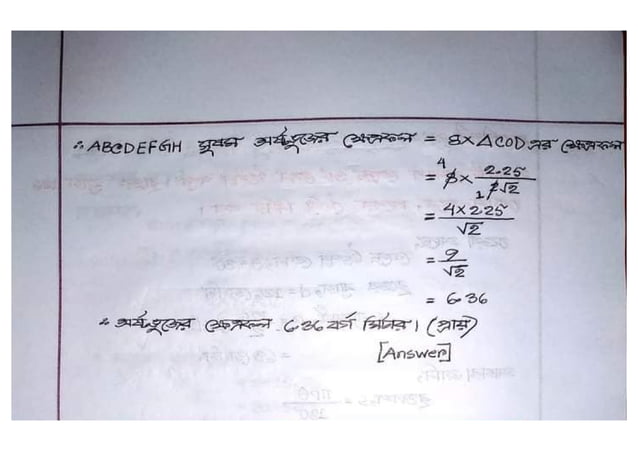 ∴ ABCDEFGH সুষম অষ্টভুজের ক্ষেত্রফল = 8 × ΔCOD এর ক্ষেত্রফল
= 8 4 × 2.25 / 1 2√2
= 4 × 2.25 / √2
= 9 / √2
= 6.36
∴ অষ্টভুজের ক্ষেত্রফল 6.36 বর্গ মিটার। (প্রায়)
[Answer]